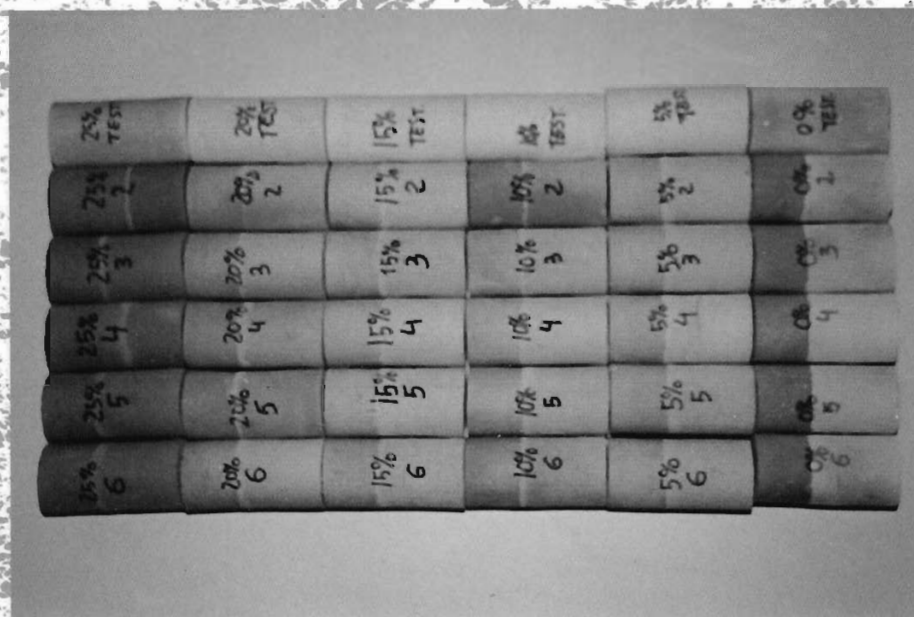 25%
TEST
20%
TEST
15%
TEST
10%
TEST
5%
TEST
0%
TEST
25%
2
20%
2
15%
2
10%
2
5%
2
0%
2
25%
3
20%
3
15%
3
10%
3
5%
3
0%
3
25%
4
20%
4
15%
4
10%
4
5%
4
0%
4
25%
5
20%
5
15%
5
10%
5
5%
5
0%
5
25%
6
20%
6
15%
6
10%
6
5%
6
0%
6